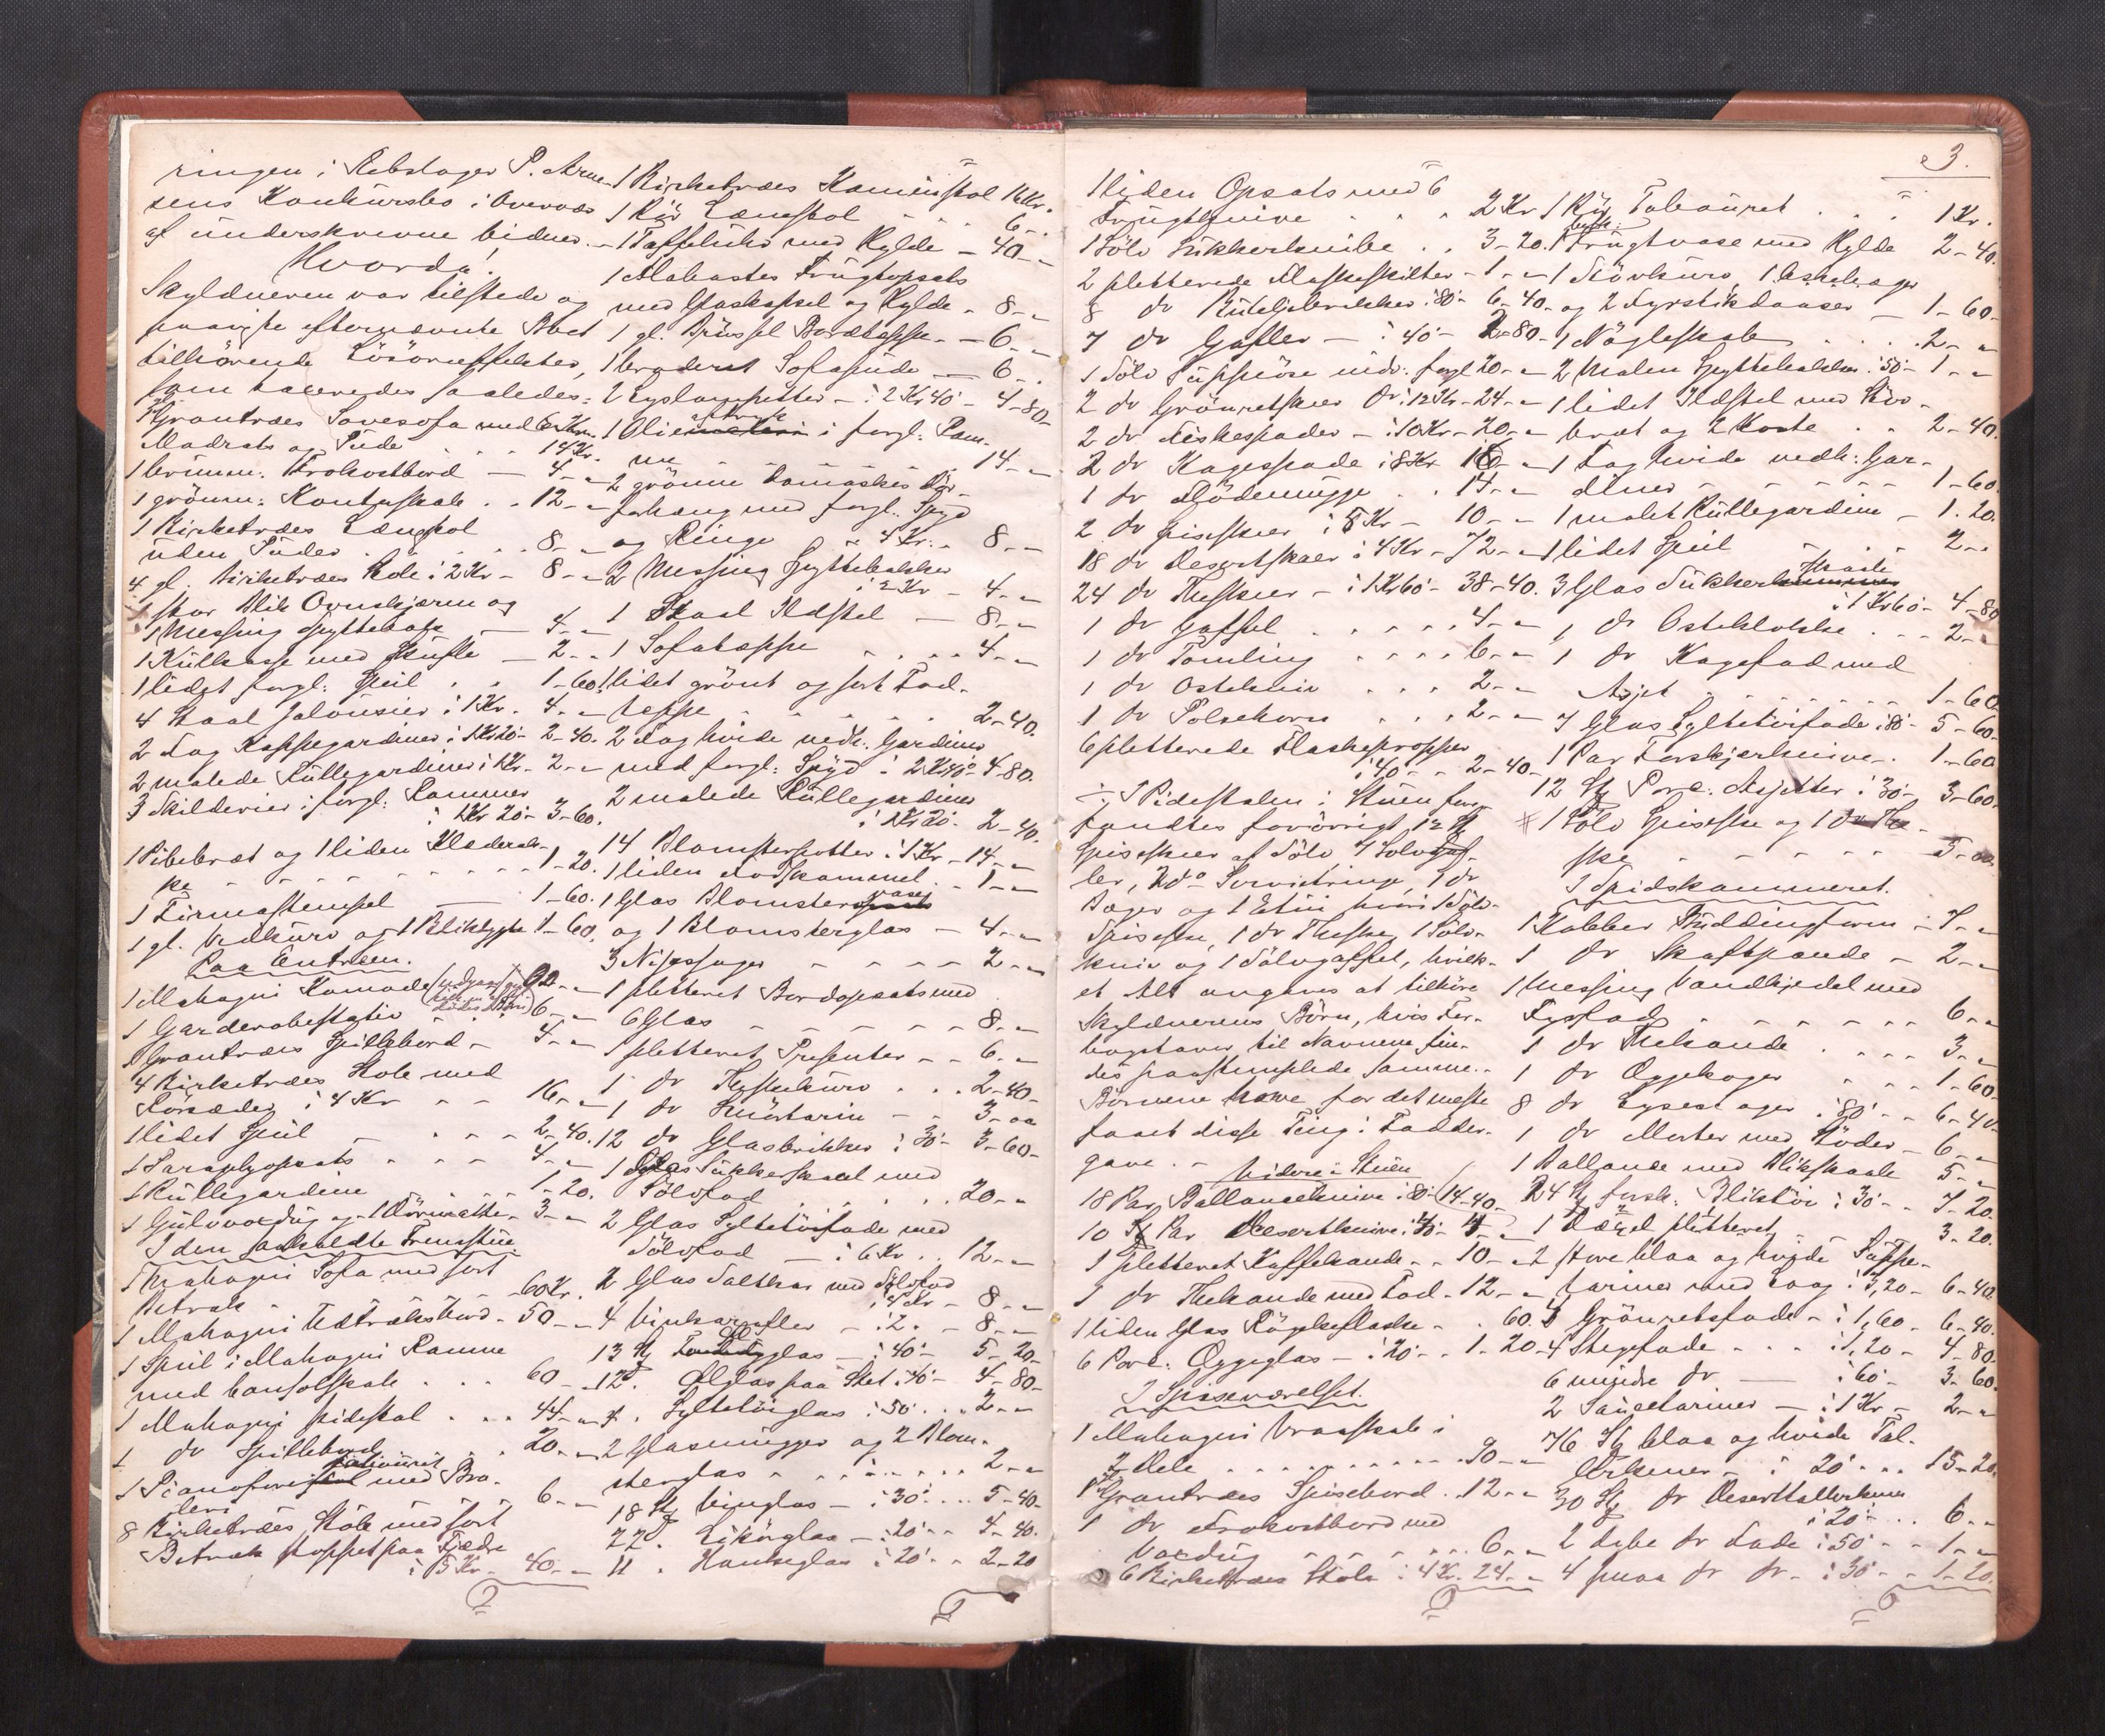 ringen i Rebslager P. Arne-
sens Konkursbo i Overvær
af underskrevne Vidner. -
Hvorda!
Skyldneren var tilstede og
paaviste efternævnte Boet
tilhörende Lösöreeffekter,
som taxeredes saaledes:
1 Grantræs Sovesofa med
Madrats og Pude . . . 14 Kr.
1 brunm. Frokostbord — 4 - "
1 grönm: Kontuskab . . 12 - "
1 Birketræs Lænestol
uden Puder . . . . 8 - "
4 gl. Birketræs Stole i 2 Kr - 8 - "
1 stor Blik Ovnskjærm og
1 Messing Spyttebak — 4 - "
1 Kulkasse med Skuffe — 2 - "
1 lidet forgl: Speil . . 1 - 60.
4 Staal Jalousier i 1 Kr. 4 - "
2 Fag Kappegardiner i 1 Kr 20 - 2 - 40.
2 malede Rullegardiner i 1 Kr. - 2 - "
3 Skilderier i forgl: Rammer
i 1 Kr 20 - 3 - 60.
1 Pibebræt og 1 liden Klædesk-
ke - - - - - 1 - 20.
1 Firmastempel — 1 - 60.
1 gl. Vedkurv og 1 Bliklygte 1 - 60.
Paa Entreen.
1 Mahagni Komode
1 Garderobestativ - 6 - "
1 Grantræs Spillebord - 4 - "
4 Birketræs Stole med
Rörsæder i 4 Kr - - 16 - "
1 lidet Speil - - - - 2 - 40.
1 Paraplyopsats - - - - 4 - "
1 Rullegardine 1 - 20.
1 Gulvvoxdug og 1 Dörmatte - 3 - "
I den saakaldte Fremstue.
1 Mahagni Sofa med sort
Betræk - - - 60 Kr.
1 Mahagni Udtræksbord - 50 - "
1 Speil i Mahagni Ramme
med Consolskab . . . 60 - "
1 Mahagni pidestal . . . 44 - "
1 dr Spillebord . . 20 - "
1 Pianoforte med Bro-
deri 6 - "
8 Birketræs Stole med sort
Betræk stoppet paa Fjædre
i 5 Kr - 40 - "
1 Birketræs Kaminstol 16 Kr.
1 Rör Lænestol . . . 6 - "
1 Taffeluhr med Hylde - 40 - "
1 Alabastes Frugtopsats
med Glaskapsel og Hylde - 8 - "
1 gl. Brüssel Bordteppe - - 6 - "
1 broderet Sofapude — 6 - "
2 Lyslampetter - i 2 Kr 40 - 4 - 80 -
1 Olietryk i forgl: Ram-
me - - - - 14 - "
2 grönne Damaskes Dör-
forhæng med forgl. Spyd
og Ringe i 4 Kr. - 8 - "
2 Messing Spyttebakker
i 2 Kr - 4 - "
1 Staal Ildstel — 8 - "
1 Sofateppe - . . . 4 - "
1 lidet grönt og sort Fod-
teppe - - - - 2 - 40.
2 Fag hvide nedh. Gardiner
med forgl: Spyd i 2 Kr 40 - 4 - 80.
2 malede Rullegardiner
i 1 Kr 20 - 2 - 40.
14 Blomsterpotter i 1 Kr - 14 - "
1 liden Fodskammel - - 1 - "
1 Glas Blomstervase
og 1 Blomsterglas — 4 - "
3 Nipssager - - - - 2 - "
1 pletteret Bordopsats med
6 Glas - - - - - 8 - "
1 pletteret Presenter - - 6 - "
1 dr . . . 2 - 40 -
1 dr - - 3 - "
12 dr Glasbrikker i 30 - 3 - 60 -
1 Glas Sukkerskaal med
Sölvfad . . . . . . 20 - "
2 Glas Syltetöifade med
Sölvfad — i 6 Kr . . 12 - "
2 Glas Saltkar med Sölvfad
i 4 Kr - 8 - "
4 Vinkarafler - i 2 - - 8 - "
13 St glas — i 40 - 5 - 20 -
12 d. Ölglas paa Stet i 40 - 4 - 80 -
4 . Syltetöiglas i 50 . . . 2 - "
2 Glasmugger og 2 Blom-
sterglas - . . . . . . 2 - "
18 St Vinglas — i 30 . . . 5 - 40 -
22 d. Likörglas — i 20 - - 4 - 40.
11 . Hankeglas i 20 - - 2 - 20
3.
1 liden Opsats med 6
Frugtknive . . . 2 Kr
1 Sölv Sukkerknibe . . 3 - 20.
2 pletterede Flaskeskilter - 1 - "
8 dr i 80 - 6 - 40 -
7 dr Gafler — i 40 - 2 - 80 -
1 Sölv Suppeöse indv: forgl 20 - "
2 dr Grönretskeer i 12 Kr - 24 - "
2 dr Fiskespader - i 10 Kr - 20 - "
2 dr Kagespade i 8 Kr 16 - "
1 dr Flödemugge . . 14 - "
2 dr Spiseskeer i 5 Kr - 10 - "
18 dr Desertskeer i 4 Kr - 72 - "
24 dr Theskeer - i 1 Kr 60 - 38 - 40.
1 dr Gaffel . . . . . 4 - "
1 dr Tomling . . . . 6 - "
1 dr Ostekniv . . . 2 - "
1 dr Pölsehorn . . . 2 - "
6 pletterede Flaskepropper
i 40 - - 2 - 40 -
÷ I Pidestalen i Stuen fore-
fandtes forövrigt 12 St
Spiseskeer af Sölv, 4 Sölvgaf-
ler, 2 do Servietringe, 1 dr
Bæger og 1 Etui hvori 1 Sölv-
Spiseske, 1 dr Theske, 1 Sölv-
kniv og 1 Sölvgaffel, hvilk-
et Alt angaves at tilhöre
Skyldnerens Börn, hvis For-
bogstaver til Navnene fin-
des paastemplede samme. -
Börnene have for det meste
faaet disse Ting i Fadder-
gave. -
Videre i Stuen
18 Par Ballanceknive i 80 - 14 - 40 -
10 Par Desertknive i 40 - 4 - "
1 pletteret Kaffekande - - 10 - "
1 dr Thekande med Fod - 12 - "
1 liden Glas Rögelseflaske - . 60.
6 Porc: Æggeglas — i 20 - - 1 - 20
I Spiseværelset.
1 Mahagni Vraaskab i
2 Dele . . . . . . . . 90 - "
1 Grantræs Spisebord . 12 - "
1 dr Frokostbord med
Voxdug - - - . . . 6 - "
6 Birketræs Stole i 4 Kr. 24 - "
1 Rög Tabouret . . . 1 Kr.
1 Frugtvase med Hylde 2 - 40.
1 Stövkurv, 1 Askebæger
og 2 Fyrstikdaaser — 1 - 60 -
1 Nögleskab . . . . 2 - "
2 Malm Spyttebakker i 50 - 1 - "
1 lidet Ildstel med Stöv-
bræt og 2 Koste . . 2 - 40.
1 Fag hvide nedh: Gar-
diner - - - - - 1 - 60.
1 malet Rullegardine - 1 . 20.
1 lidet Speil - . . 2 - "
3 Glas Sukkerskaale
i 1 Kr 60 - 4 - 80
1 dr Osteklokke . . . 2 - "
1 dr Kagefad med
Asjet - - - - - 1 - 60.
7 Glas Syltetöifade i 80 - 5 - 60 -
1 Par Forskjærknive - . 1 - 60
12 St Porc: Asjetter i 30 - 3 - 60.
# 1 Sölv Spiseske og 1 dr The-
ske - - - - - 5 - 00.
I Spidskammeret.
1 Kobber Puddingform - 7 - "
1 dr Skaftpande - 2 - "
1 Messing Vandkjedel med
Fyrfad - - - - - 6 - "
1 dr Thekande . . . . 3 - "
1 dr Æggekoger . . . 1 - 60 -
8 dr Lysestager i 80 - - 6 - 40 -
1 dr Morter med Stöder - 6 - "
1 Ballance med Blikskaale 5 - "
24 St forsk: Bliktöi i 30 - . 7 - 20.
1 pletteret 3 - 20.
2 store blaa og hvide Suppe-
tariner med Laag i 3,20 - 6 - 40.
4 Grönretsfade - i 1,60 - 6 - 40.
4 Stegefade . . . i 1,20 - 4 - 80.
6 mindre dr — i 60 - 3 - 60.
2 Saucetariner — i 1 Kr - 2 - "
76 St blaa og hvide Tal-
lerkener - i 20 - . . 15 - 20.
30 St dr Deserttallerkener
i 20 - . . . 6 - "
2 dybe dr Fade i 50 - - 1 - "
4 smaa dr dr - i 30 - - 1 - 20.